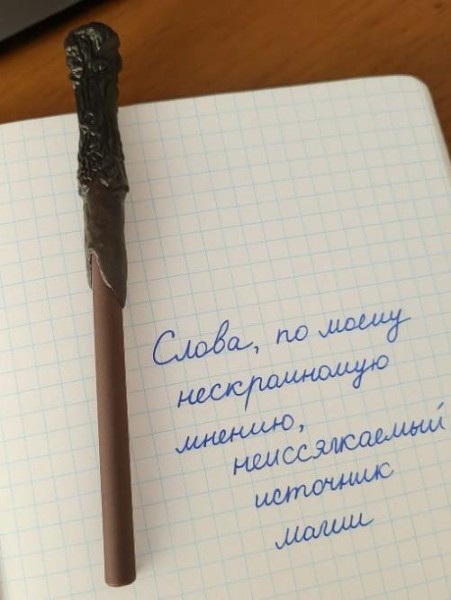 Слова, по моему
нескромному
мнению,
неиссякаемый
источник
магии